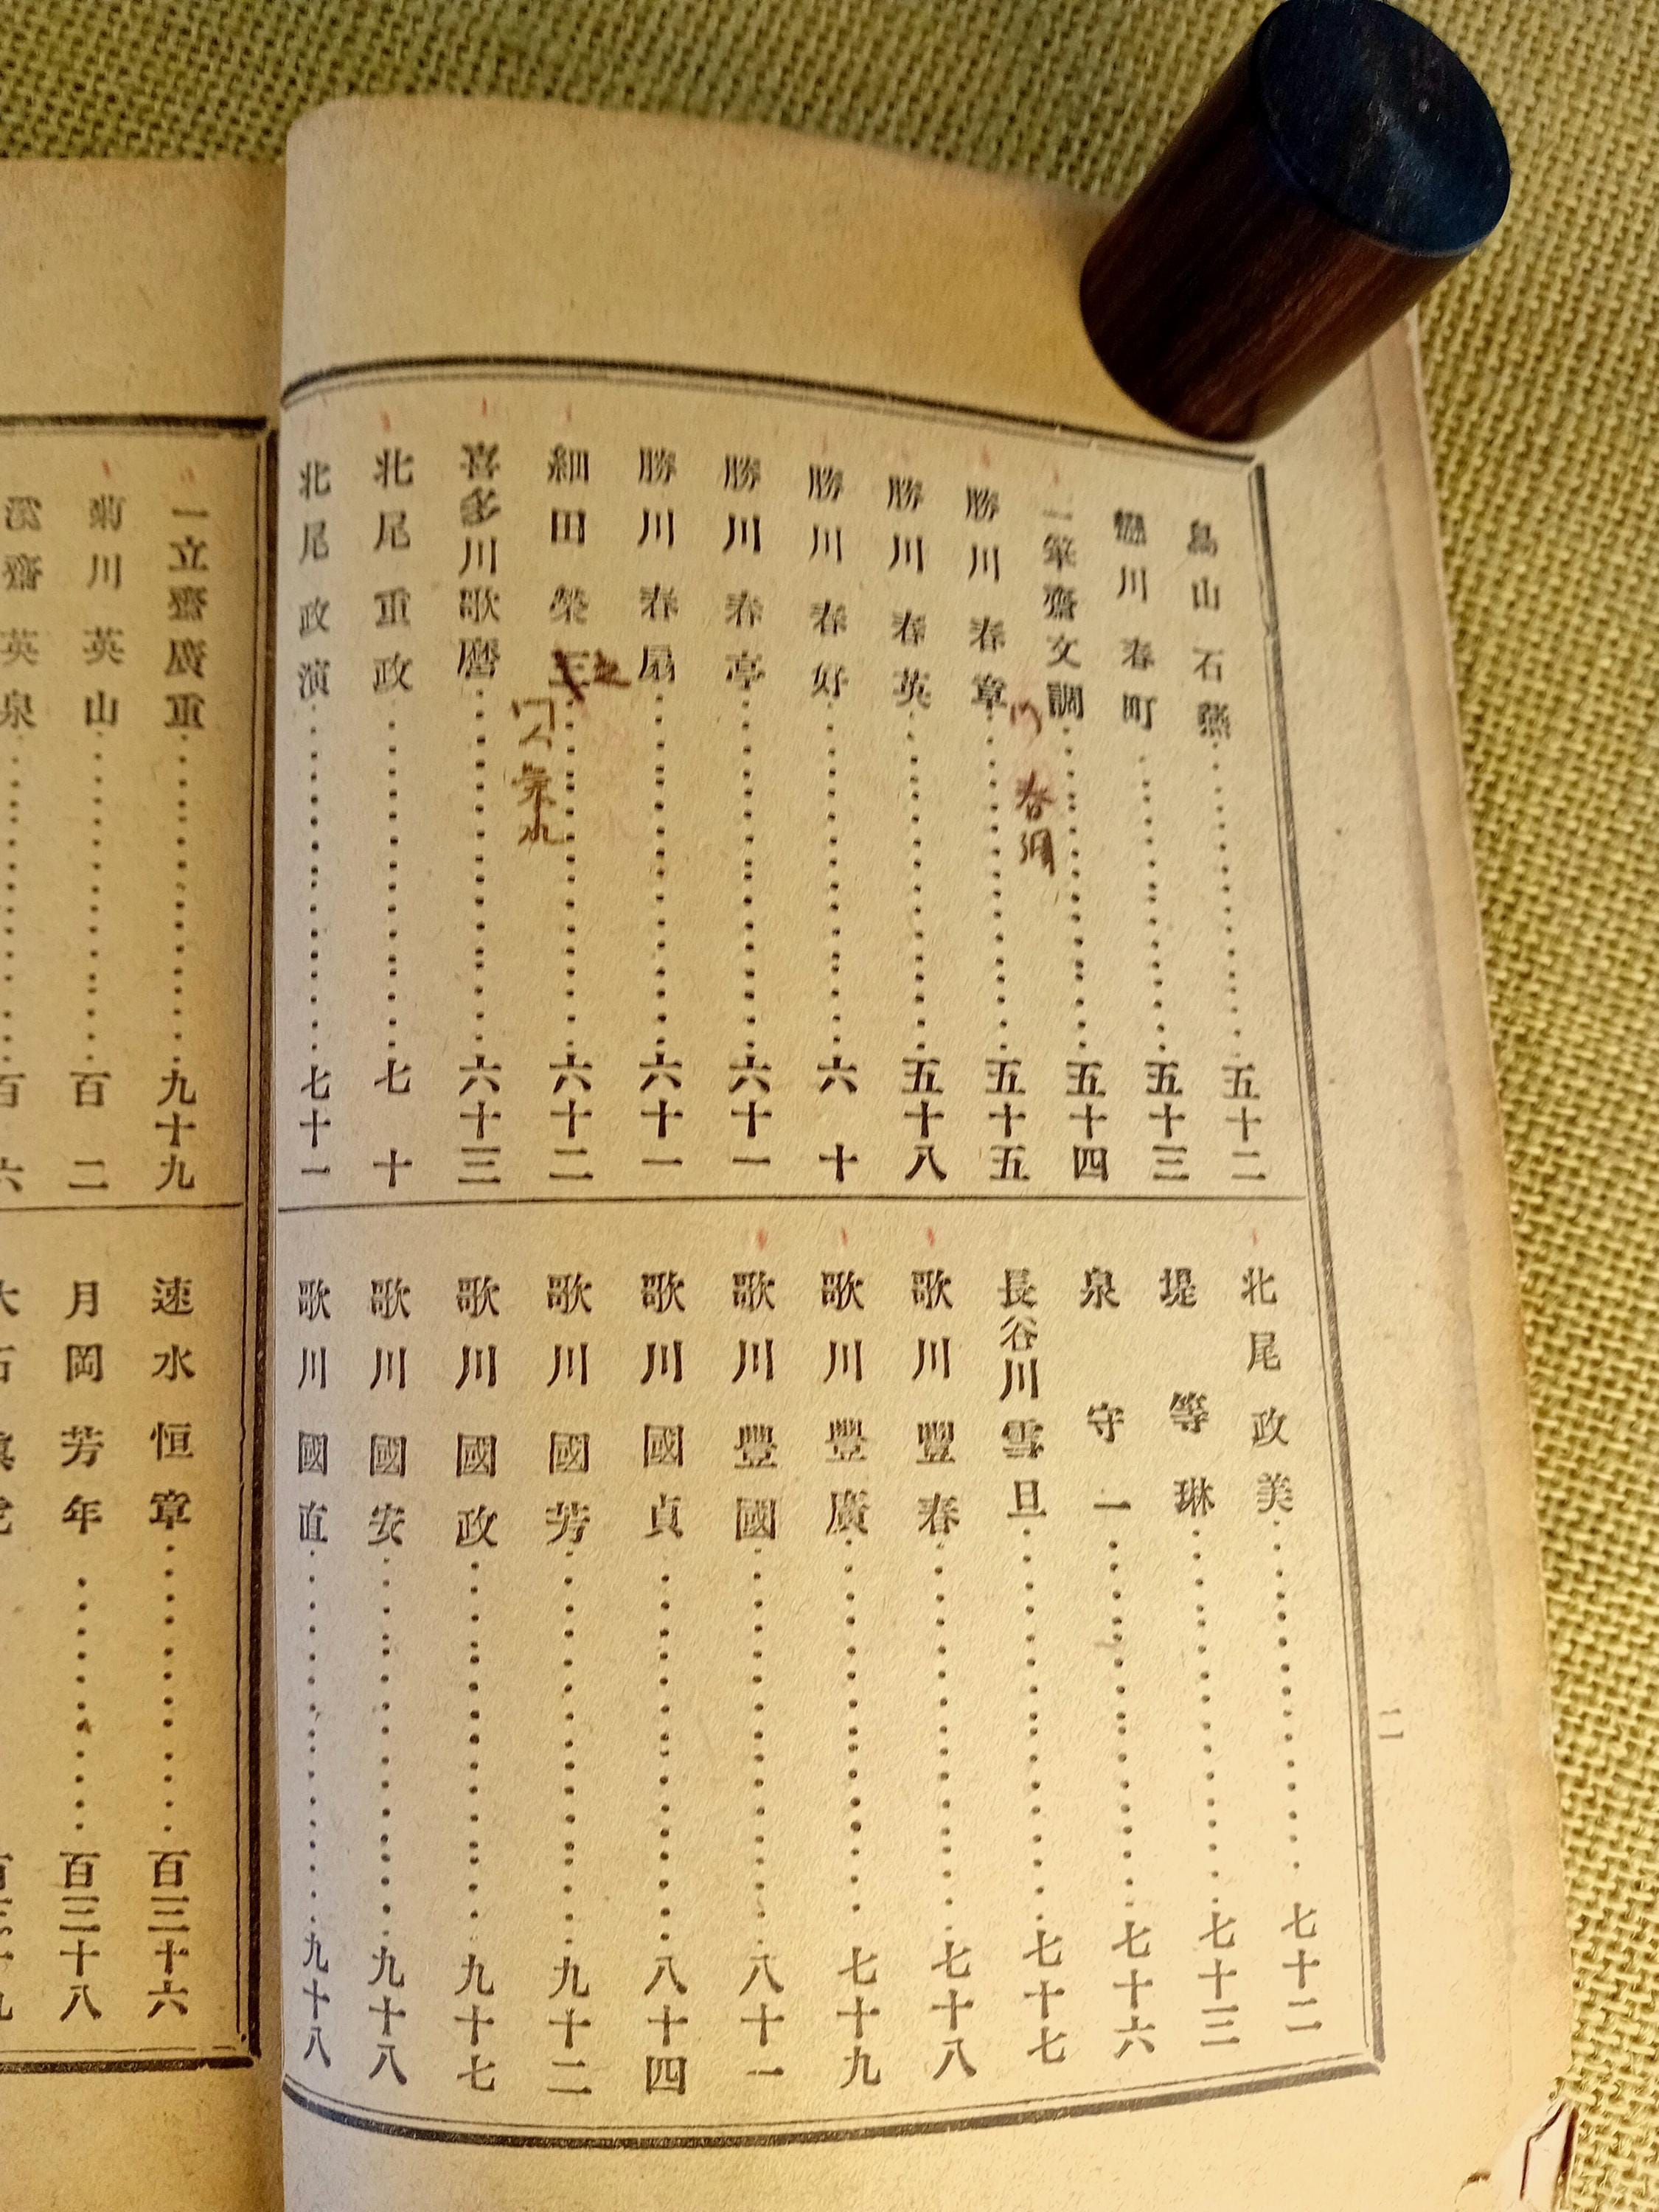 鳥山石燕……五十二
戀川春町……五十三
一筆齋文調……五十四
勝川春章……五十五
春潮
勝川春英……五十八
勝川春好……六十
勝川春亭……六十一
勝川春扇……六十一
細田榮之……六十二
喜多川歌麿……六十三
北尾重政……七十
北尾政演……七十一
北尾政美……七十二
堤等琳……七十三
泉守一……七十六
長谷川雪旦……七十七
歌川豐春……七十八
歌川豐廣……七十九
歌川豐國……八十一
歌川國貞……八十四
歌川國芳……九十二
歌川國政……九十七
歌川國安……九十八
歌川國直……九十八
二
一立齋廣重……九十九
菊川英山……百二
溪齋英泉……百六
速水恒章……百三十六
月岡芳年……百三十八